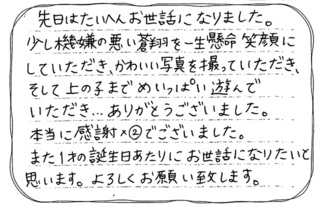 先日はたいへんお世話になりました。
少し機嫌の悪い蒼翔を一生懸命笑顔に
していただき、かわいい写真を撮っていただき、
そして上の子までめいっぱい遊んで
いただき…ありがとうございました。
本当に感謝×②でございました。
また1才の誕生日あたりにお世話になりたいと
思います。よろしくお願い致します。